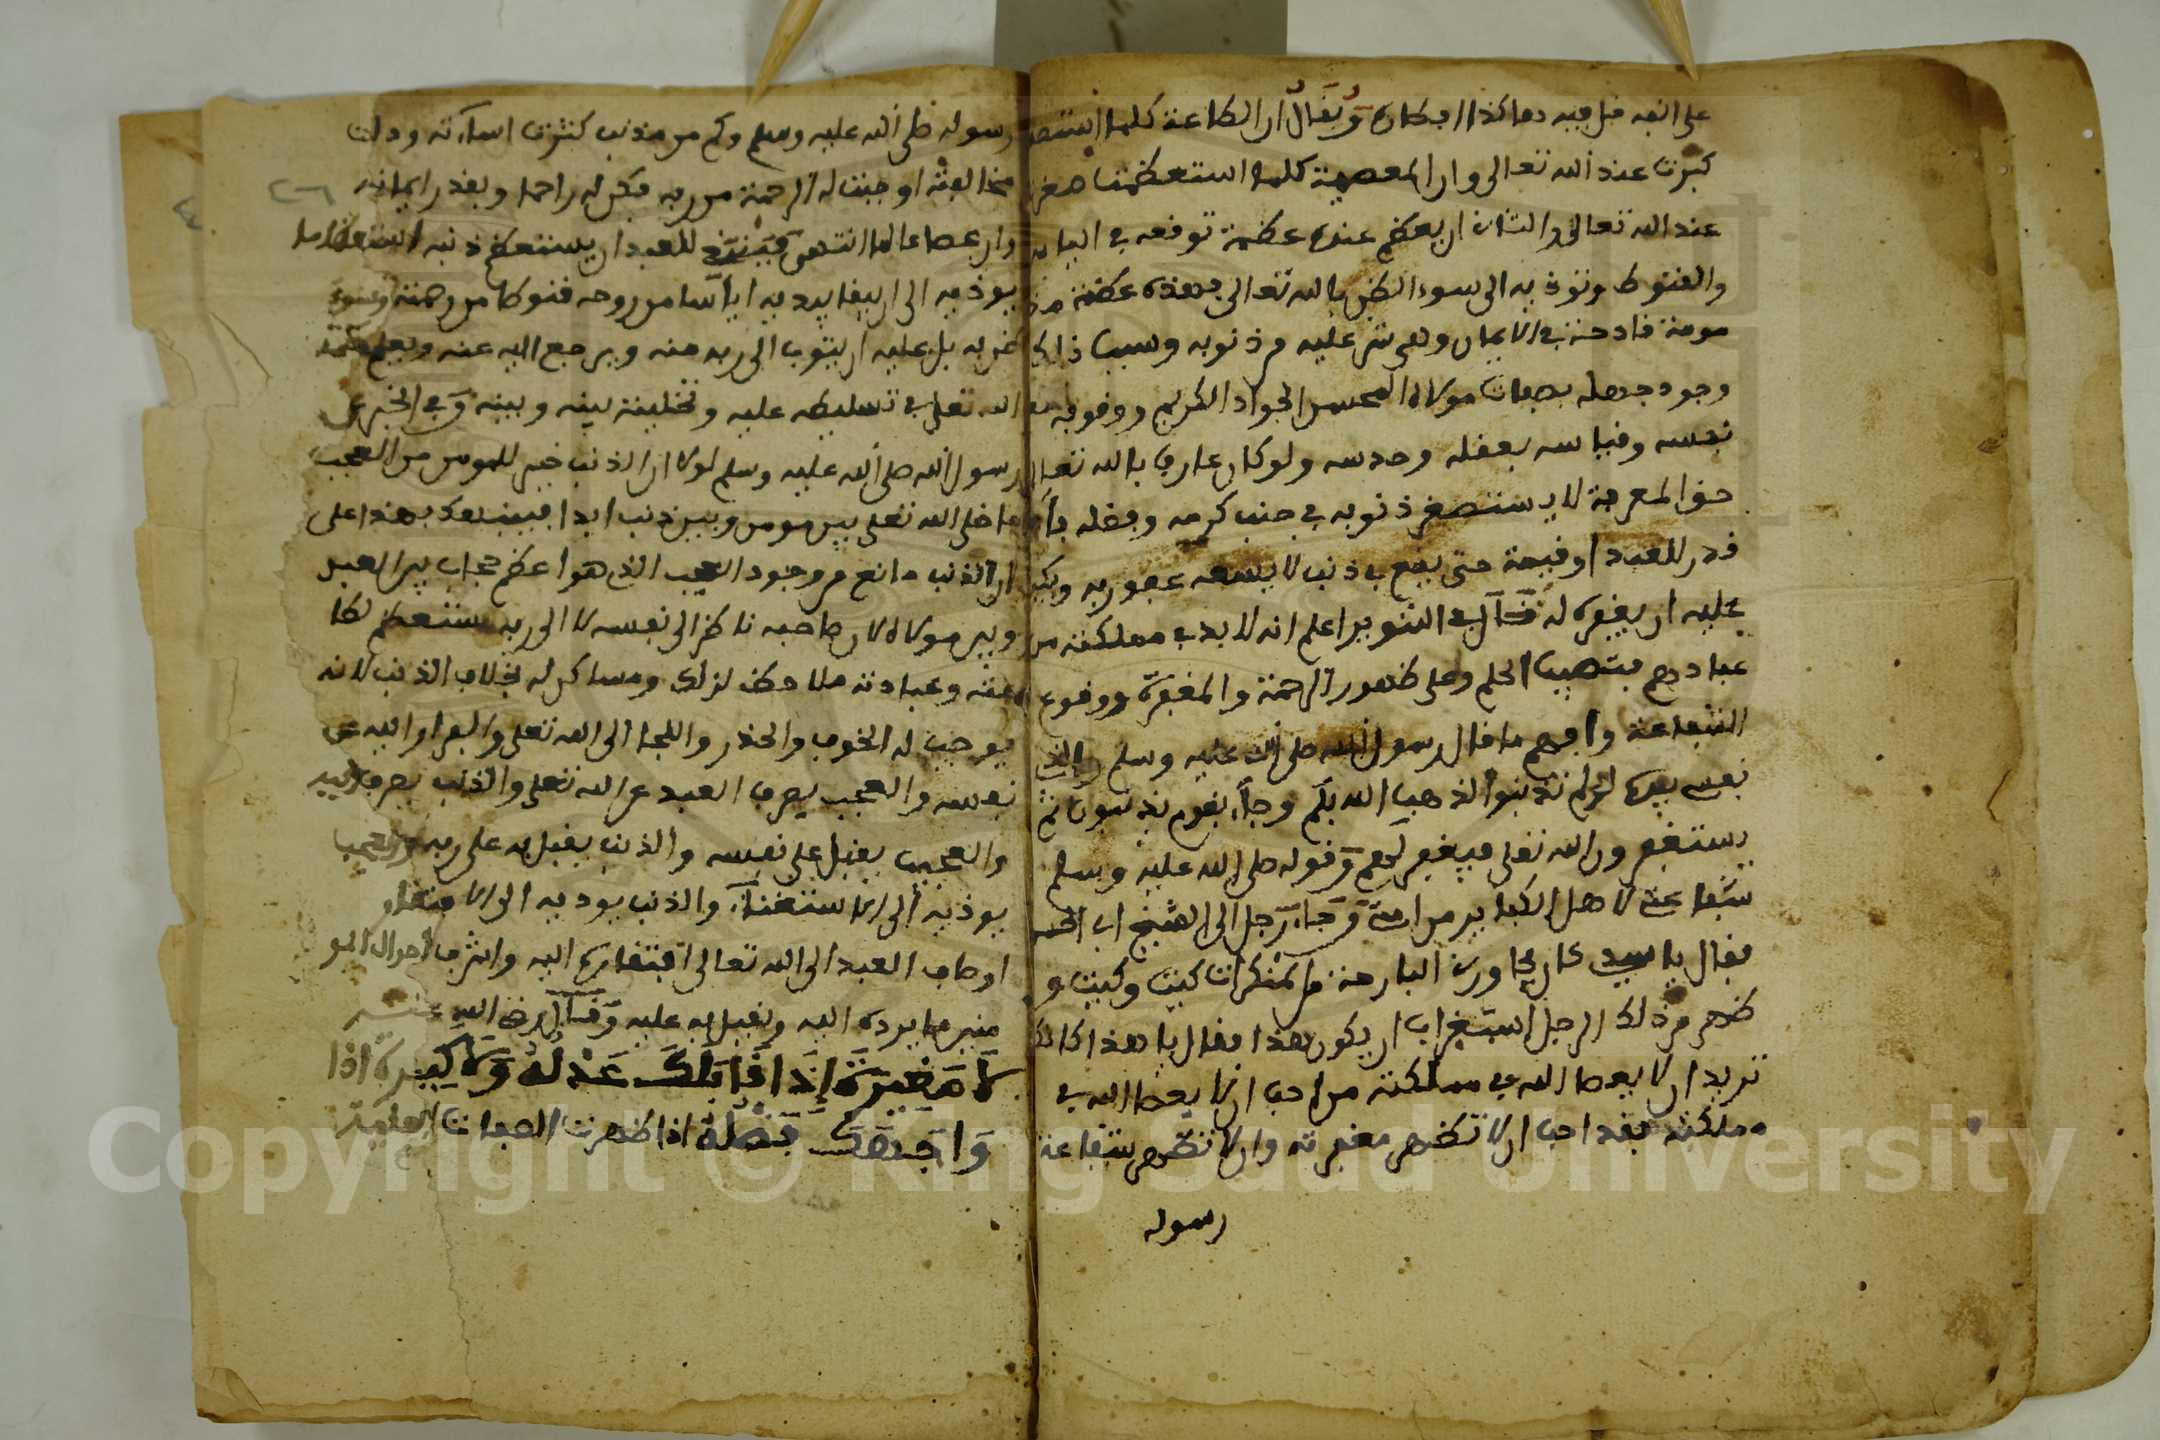 على انفه فقال فيه هكذا فطاره وَيُقَالُ ان الطاعة كلما استصغرت
كبرت عند الله تعالى وان المعصية كلما استعظمت صغرت
عند الله تعالى والثاني ان يعظم عنده عظمة توقعه في الياس
والقنوط وتؤذيه الى سوء الظن بالله تعالى فهذه عظمة مذ
مومة قادحة في الايمان وهي شر عليه من ذنوبه وسبب ذلك
وجود جهله بصفات مولاه المحسن الجواد الكريم ووقوفه مع
نفسه وقياسه بعقله وحدسه ولو كان عارفا بالله تعالى
حق المعرفة لاستصغر ذنوبه في جنب كرمه وفضله فاي
قدر للعبد او قيمة حتى يقع في ذنب لا يسعه عفو ربه ويكبر
عليه ان يغفره له قَالَ في التنوير اعلم انه لا بد في مملكته من
عباد هم نصيب الحلم وعلى ظهور الرحمة والمغفرة ووقوع
الشفاعة وافهم ما قال رسول الله صلى الله عليه وسلم والذي
نفسي بيده لو لم تذنبوا لذهب الله بكم وجاء بقوم يذنبون ثم
يستغفرون الله تعلى فيغفر لهم وقوله صلى الله عليه وسلم
شفاعتي لاهل الكباير من امتي وَجاء رجل الى الشيخ ابي الحسن
فقال يا سيدي كان بجاورنا البارحة من المنكرات كيت وكيت و
ظهر من ذلك الرجل استغراب ان يكون هذا فقال يا هذا كانك
تريد ان لا يعصا الله في مملكته من احب ان لا يعصا الله في
مملكته فقد احب ان لا تظهر مغفرته وان لا تظهر شفاعة
رسوله
رسوله صلى الله عليه وسلم وكم من مذنب كثرت اساءته وذنت
مخالفته اوجبت له الرحمة من ربه فكن له راحما وبقدر ايمانه
وان عصا عالما انتهى فينبغي للعبد ان يستعظم ذنبه استعظاما
يؤذيه الى ان يفايديه اياسا من روحه قنوطا من رحمته وسوء
ظن به بل عليه ان يتوب الى ربه منه ويرجع اليه عنه ويعلم حكمة
الله تعلى في تسليطه عليه وتخليته بينه وبينه وفي الخبر عن
رسول الله صلى الله عليه وسلم لولا ان الذنب خير للمومن من العجب
ما خلى الله تعلى بين مومن وبين ذنب ابدا فينبهك بهذا على
ان الذنب مانع من وجود العجب الذي هو اعظم حجاب بين العبد
وبين مولاه لان صاحبه ناظر الى نفسه لا الى ربه مستعظم لطا
عته وعبادته ملاحظ لذلك ومساكن له بخلاف الذنب لانه
يوجب له الخوف والحذر واللجا الى الله تعلى والفرار اليه عن
نفسه والعجب يصرف العبد عن الله تعلى والذنب يصرفه اليه
والعجب يقبل على نفسه والذنب يقبل به على ربه والعجب
يوذيه الى الاستغناء والذنب يوديه الى الافتقار و
اوصاف العبد الى الله تعالى افتقاره اليه واشرف احوال المو
منين ما يرده اليه ويقبل به عليه وَقَالَ رضي الله عنه
لَا صَغِيرَةَ إِذَا قَابَلَكَ عَدْلُهُ وَلَا كَبِيرَةَ اذا
وَاجَهَكَ فَضْلُهُ اذا ظهرت الصفات العلية